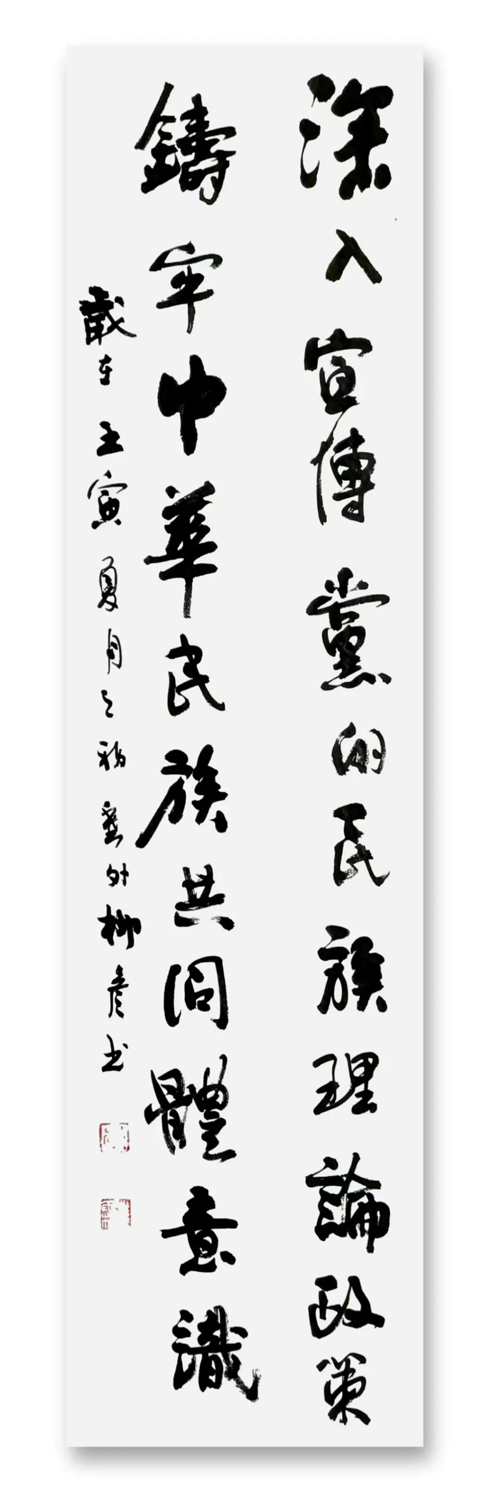 深入宣傳黨的民族理論政策
鑄牢中華民族共同體意識
歲在壬寅夏月之初塞外柳彥书